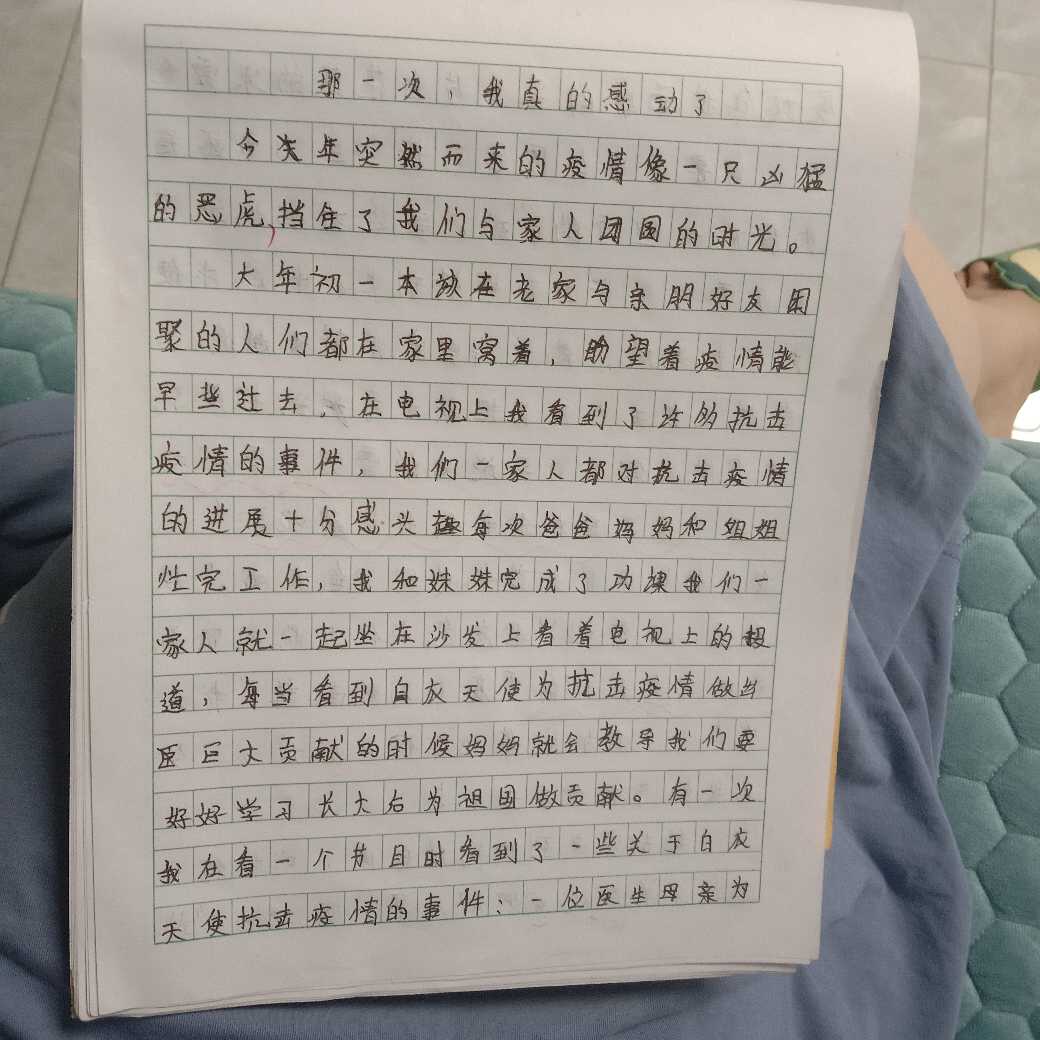 那一次,我真的感动了
今年突然而来的疫情像一只凶猛
的恶虎,挡住了我们与家人团圆的时光。
大年初一本该在老家与亲朋好友团
聚的人们都在家里窝着,盼望着疫情能
早些过去,在电视上我看到了许多抗击
疫情的事件,我们一家人都对抗击疫情
的进展十分感兴趣每次爸爸妈妈和姐姐
忙完工作,我和妹妹完成了功课我们一
家人就一起坐在沙发上看着电视上的报
道,每当看到白衣天使为抗击疫情做出
巨大贡献的时候妈妈就会教导我们要
好好学习长大后为祖国做贡献。有一次
我在看一个节目时看到了一些关于白衣
天使抗击疫情的事件:一位医生母亲为